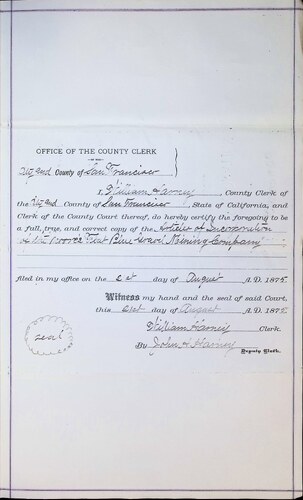 OFFICE OF THE COUNTY CLERK
City and County of San Francisco
I, William Harney County Clerk of
the City and County of San Francisco, State of California, and
Clerk of the County Court thereof, do hereby certify the foregoing to be
a full, true, and correct copy of the Articles of Incorporation
of the West Blue Gravel Mining Company
filed in my office on the 21st day of August A. D. 1875
Witness my hand and the seal of said Court,
this 21st day of August A. D. 1875
William Harney Clerk.
seal
By John H Harney
Deputy Clerk.